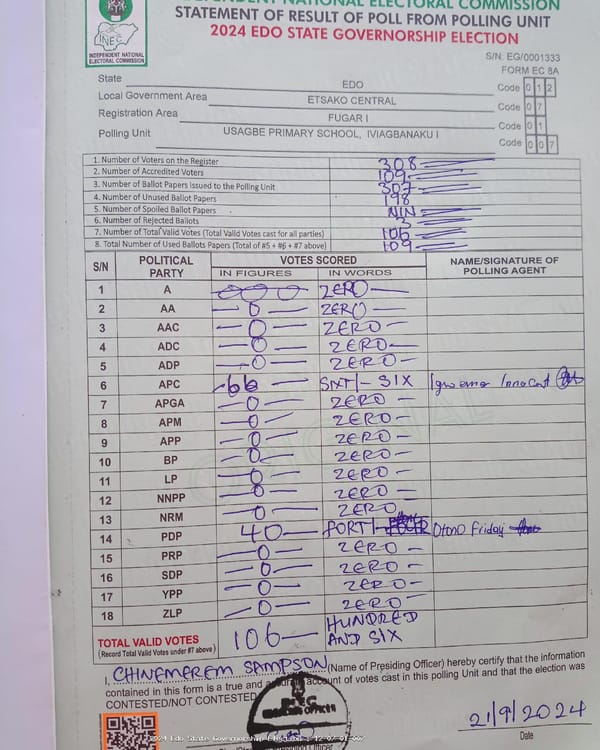 INDEPENDENT NATIONAL ELECTORAL COMMISSION
STATEMENT OF RESULT OF POLL FROM POLLING UNIT
2024 EDO STATE GOVERNORSHIP ELECTION
INEC
INDEPENDENT NATIONAL
ELECTORAL COMMISSION
S/N. EG/0001333
FORM EC 8A
State EDO Code 0 1 2
Local Government Area ETSAKO CENTRAL Code 0 7
Registration Area FUGAR I Code 0 1
Polling Unit USAGBE PRIMARY SCHOOL, IVIAGBANAKU I Code 0 0 7
1. Number of Voters on the Register 308
2. Number of Accredited Voters 109
3. Number of Ballot Papers Issued to the Polling Unit 307
4. Number of Unused Ballot Papers 198
5. Number of Spoiled Ballot Papers NIN
6. Number of Rejected Ballots 3
7. Number of Total Valid Votes (Total Valid Votes cast for all parties) 106
8. Total Number of Used Ballots Papers (Total of #5 + #6 + #7 above) 109
S/N POLITICAL PARTY VOTES SCORED NAME/SIGNATURE OF POLLING AGENT
IN FIGURES IN WORDS
1 A 000 ZERO
2 AA 0 ZERO
3 AAC 0 ZERO
4 ADC 0 ZERO
5 ADP 0 ZERO
6 APC 66 SIXTY-SIX Innocent
7 APGA 0 ZERO
8 APM 0 ZERO
9 APP 0 ZERO
10 BP 0 ZERO
11 LP 0 ZERO
12 NNPP 0 ZERO
13 NRM 0 ZERO
14 PDP 40 FORTY Otono Friday
15 PRP 0 ZERO
16 SDP 0 ZERO
17 YPP 0 ZERO
18 ZLP 0 ZERO
TOTAL VALID VOTES 106 HUNDRED AND SIX
(Record Total Valid Votes under #7 above)
I, CHINEMEREM SAMPSON (Name of Presiding Officer) hereby certify that the information
contained in this form is a true and account of votes cast in this polling Unit and that the election was
CONTESTED/NOT CONTESTED
21/9/2024
Date
2024 Edo State Governorship Election